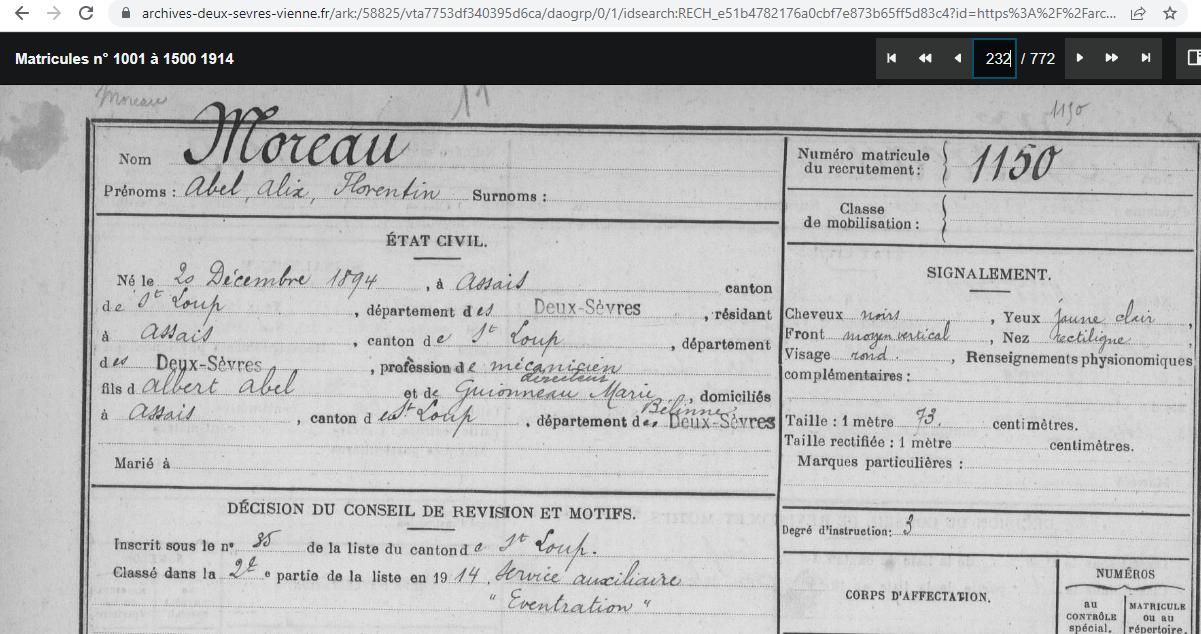 archives-deux-sevres-vienne.fr/ark:/58825/vta7753df340395d6ca/daogrp/0/1/idsearch:RECH_e51b4782176a0cbf7e873b65ff5d83c4?id=https%3A%2F%2Farc...
Matricules n° 1001 à 1500 1914
232 / 772
Moreau
1150
Nom Moreau
Prénoms : Abel, Alix, Florentin Surnoms :
Numéro matricule
du recrutement : 1150
Classe
de mobilisation :
ÉTAT CIVIL.
Né le 20 Décembre 1894, à Assais canton
de St Loup, département des Deux-Sèvres, résidant
à Assais, canton de St Loup, département
des Deux-Sèvres, profession de mécanicien
fils d'Albert Abel et de Guionneau Marie, domiciliés
à Assais, canton de St Loup, département des Deux-Sèvres
Marié à
SIGNALEMENT.
Cheveux noirs, Yeux jaune clair,
Front moyen vertical, Nez rectiligne,
Visage rond., Renseignements physionomiques
complémentaires :
Taille : 1 mètre 73. centimètres.
Taille rectifiée : 1 mètre centimètres.
Marques particulières :
DÉCISION DU CONSEIL DE REVISION ET MOTIFS.
Inscrit sous le n° 85 de la liste du canton de St Loup.
Classé dans la 2e partie de la liste en 1914, Service auxiliaire
" Eventration "
Degré d'instruction : 3
CORPS D'AFFECTATION.
NUMÉROS
au
CONTRÔLE
spécial.
MATRICULE
ou au
répertoire.